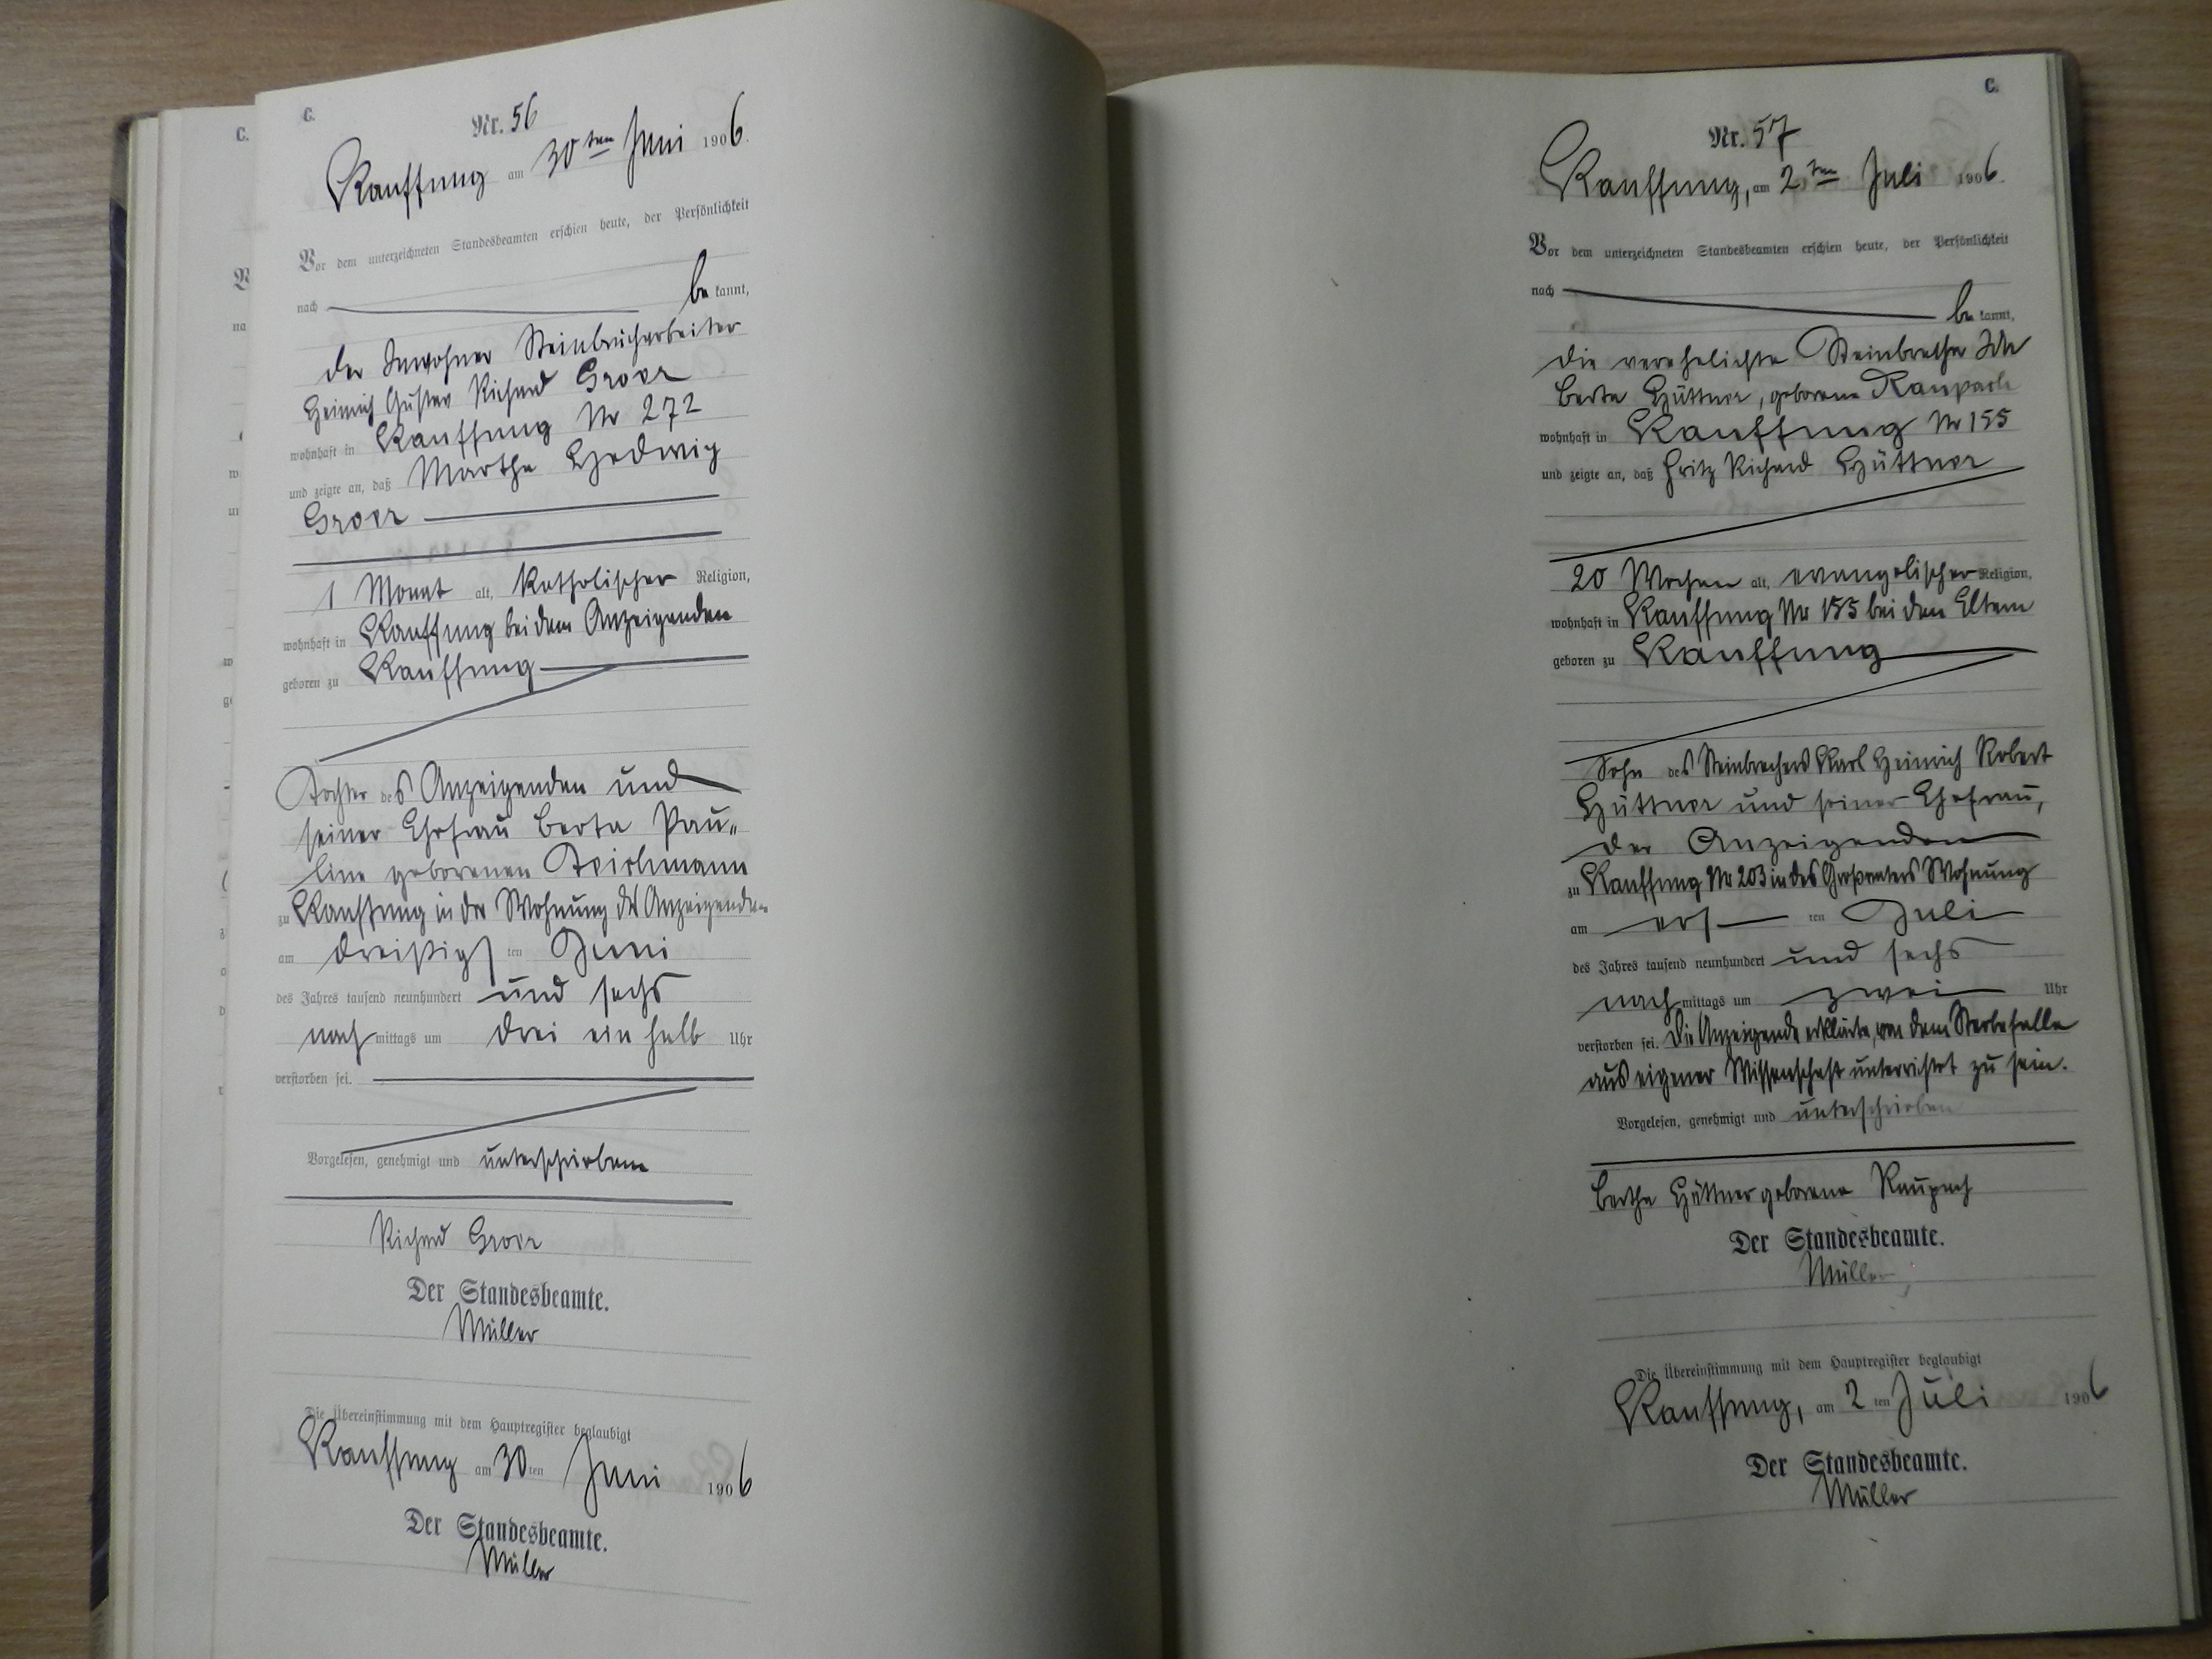 C.
Nr. 56
Kauffung am 30ten Juni 1906.
Vor dem unterzeichneten Standesbeamten erschien heute, der Persönlichkeit
nach be kannt,
der Inwohner Steinbrucharbeiter
Heinrich Gustav Richard Groer
wohnhaft in Kauffung Nr 272
und zeigte an, daß Martha Hedwig
Groer
1 Monat alt, katholischer Religion,
wohnhaft in Kauffung bei dem Anzeigenden
geboren zu Kauffung
Tochter des Anzeigenden und
seiner Ehefrau Berta Pau„
line geborenen Teichmann
zu Kauffung in der Wohnung des Anzeigenden
am dreißigs ten Juni
des Jahres tausend neunhundert und sechs
nach mittags um drei ein halb Uhr
verstorben sei.
Vorgelesen, genehmigt und unterschrieben
Richard Groer
Der Standesbeamte.
Müller
Die Übereinstimmung mit dem Hauptregister beglaubigt
Kauffung am 30ten Juni 1906
Der Standesbeamte.
Müller
C.
Nr. 57
Kauffung, am 2ten Juli 1906.
Vor dem unterzeichneten Standesbeamten erschien heute, der Persönlichkeit
nach be kannt,
die verehelichte Steinbrecher Ida
Berta Hüttner, geborene Raupach
wohnhaft in Kauffung Nr 155
und zeigte an, daß Fritz Richard Hüttner
20 Wochen alt, evangelischer Religion,
wohnhaft in Kauffung Nr 155 bei den Eltern
geboren zu Kauffung
Sohn des Steinbrechers Karl Heinrich Robert
Hüttner und seiner Ehefrau,
der Anzeigenden
zu Kauffung Nr 203 in des Großvaters Wohnung
am ers ten Juli
des Jahres tausend neunhundert und sechs
nach mittags um zwei Uhr
verstorben sei. Die Anzeigende erklärte, von dem Sterbefalle
aus eigener Wissenschaft unterrichtet zu sein.
Vorgelesen, genehmigt und unterschrieben
Berthe Hüttner geborene Raupach
Der Standesbeamte.
Müller
Die Übereinstimmung mit dem Hauptregister beglaubigt
Kauffung, am 2 ten Juli 1906
Der Standesbeamte.
Müller